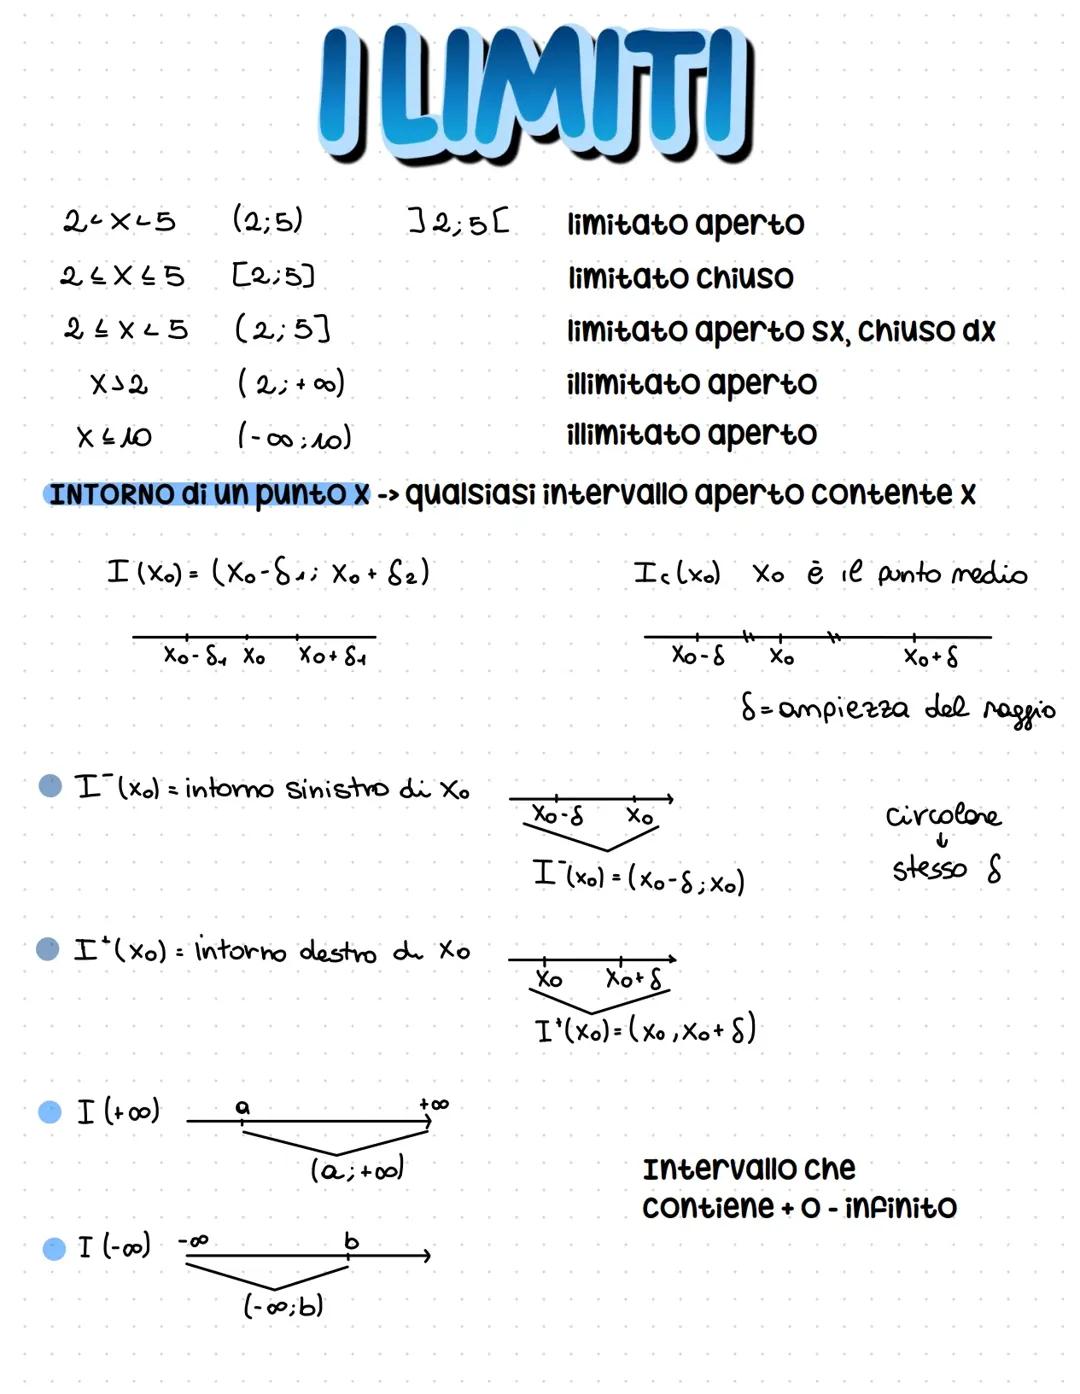 I LIMITI
2<x<5 (2;5) ]2;5[ limitato aperto
2≤x≤5 [2;5] limitato chiuso
2≤x<5 (2;5] limitato aperto sx, chiuso dx
x>2 (2;+∞) illimitato aperto
x≤10 (-∞;10) illimitato aperto
INTORNO di un punto x -> qualsiasi intervallo aperto contente x
I(x₀) = (x₀-δ₁; x₀+δ₂) Ic(x₀) x₀ è il punto medio
x₀-δ₁ x₀ x₀+δ₁ x₀-δ x₀ x₀+δ
δ=ampiezza del raggio
I⁻(x₀) = intorno sinistro di x₀
x₀-δ x₀
circolare
↓
stesso δ
I⁻(x₀) = (x₀-δ;x₀)
I⁺(x₀) = intorno destro di x₀
x₀ x₀+δ
I⁺(x₀)=(x₀,x₀+δ)
I(+∞) a +∞
(a;+∞)
Intervallo che
contiene + o - infinito
I(-∞) -∞ b
(-∞;b)